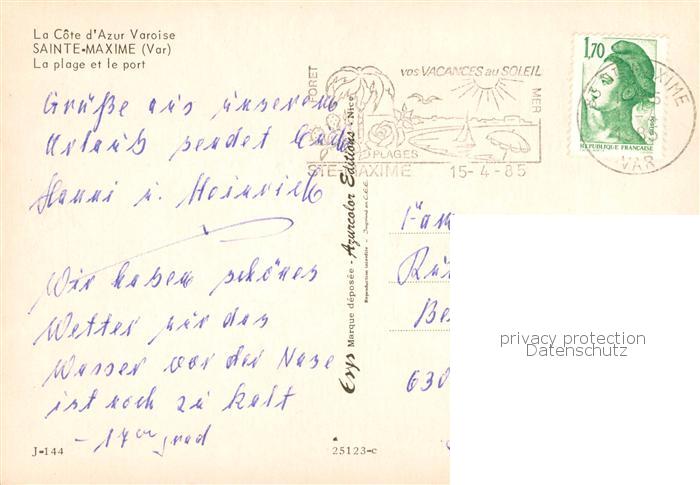 La Côte d'Azur Varoise
SAINTE-MAXIME (Var)
La plage et le port
FORET
VOS VACANCES au SOLEIL
MER
PLAGES
STE MAXIME 15-4-85
1,70
REPUBLIQUE FRANÇAISE
MAXIME
VAR
Grüße aus unserem
Urlaub sendet Euch
Hanni u. Heinrich
Wir haben schönes
Wetter nur das
Wasser vor der Nase
ist noch zu kalt
- 17 grad
Esys Marque déposée - Azurcolor Editions - Nice
Reproduction interdite - Imprimé en C.E.E.
Fam
Rü
Be
630
privacy protection
Datenschutz
J-144
25123-c